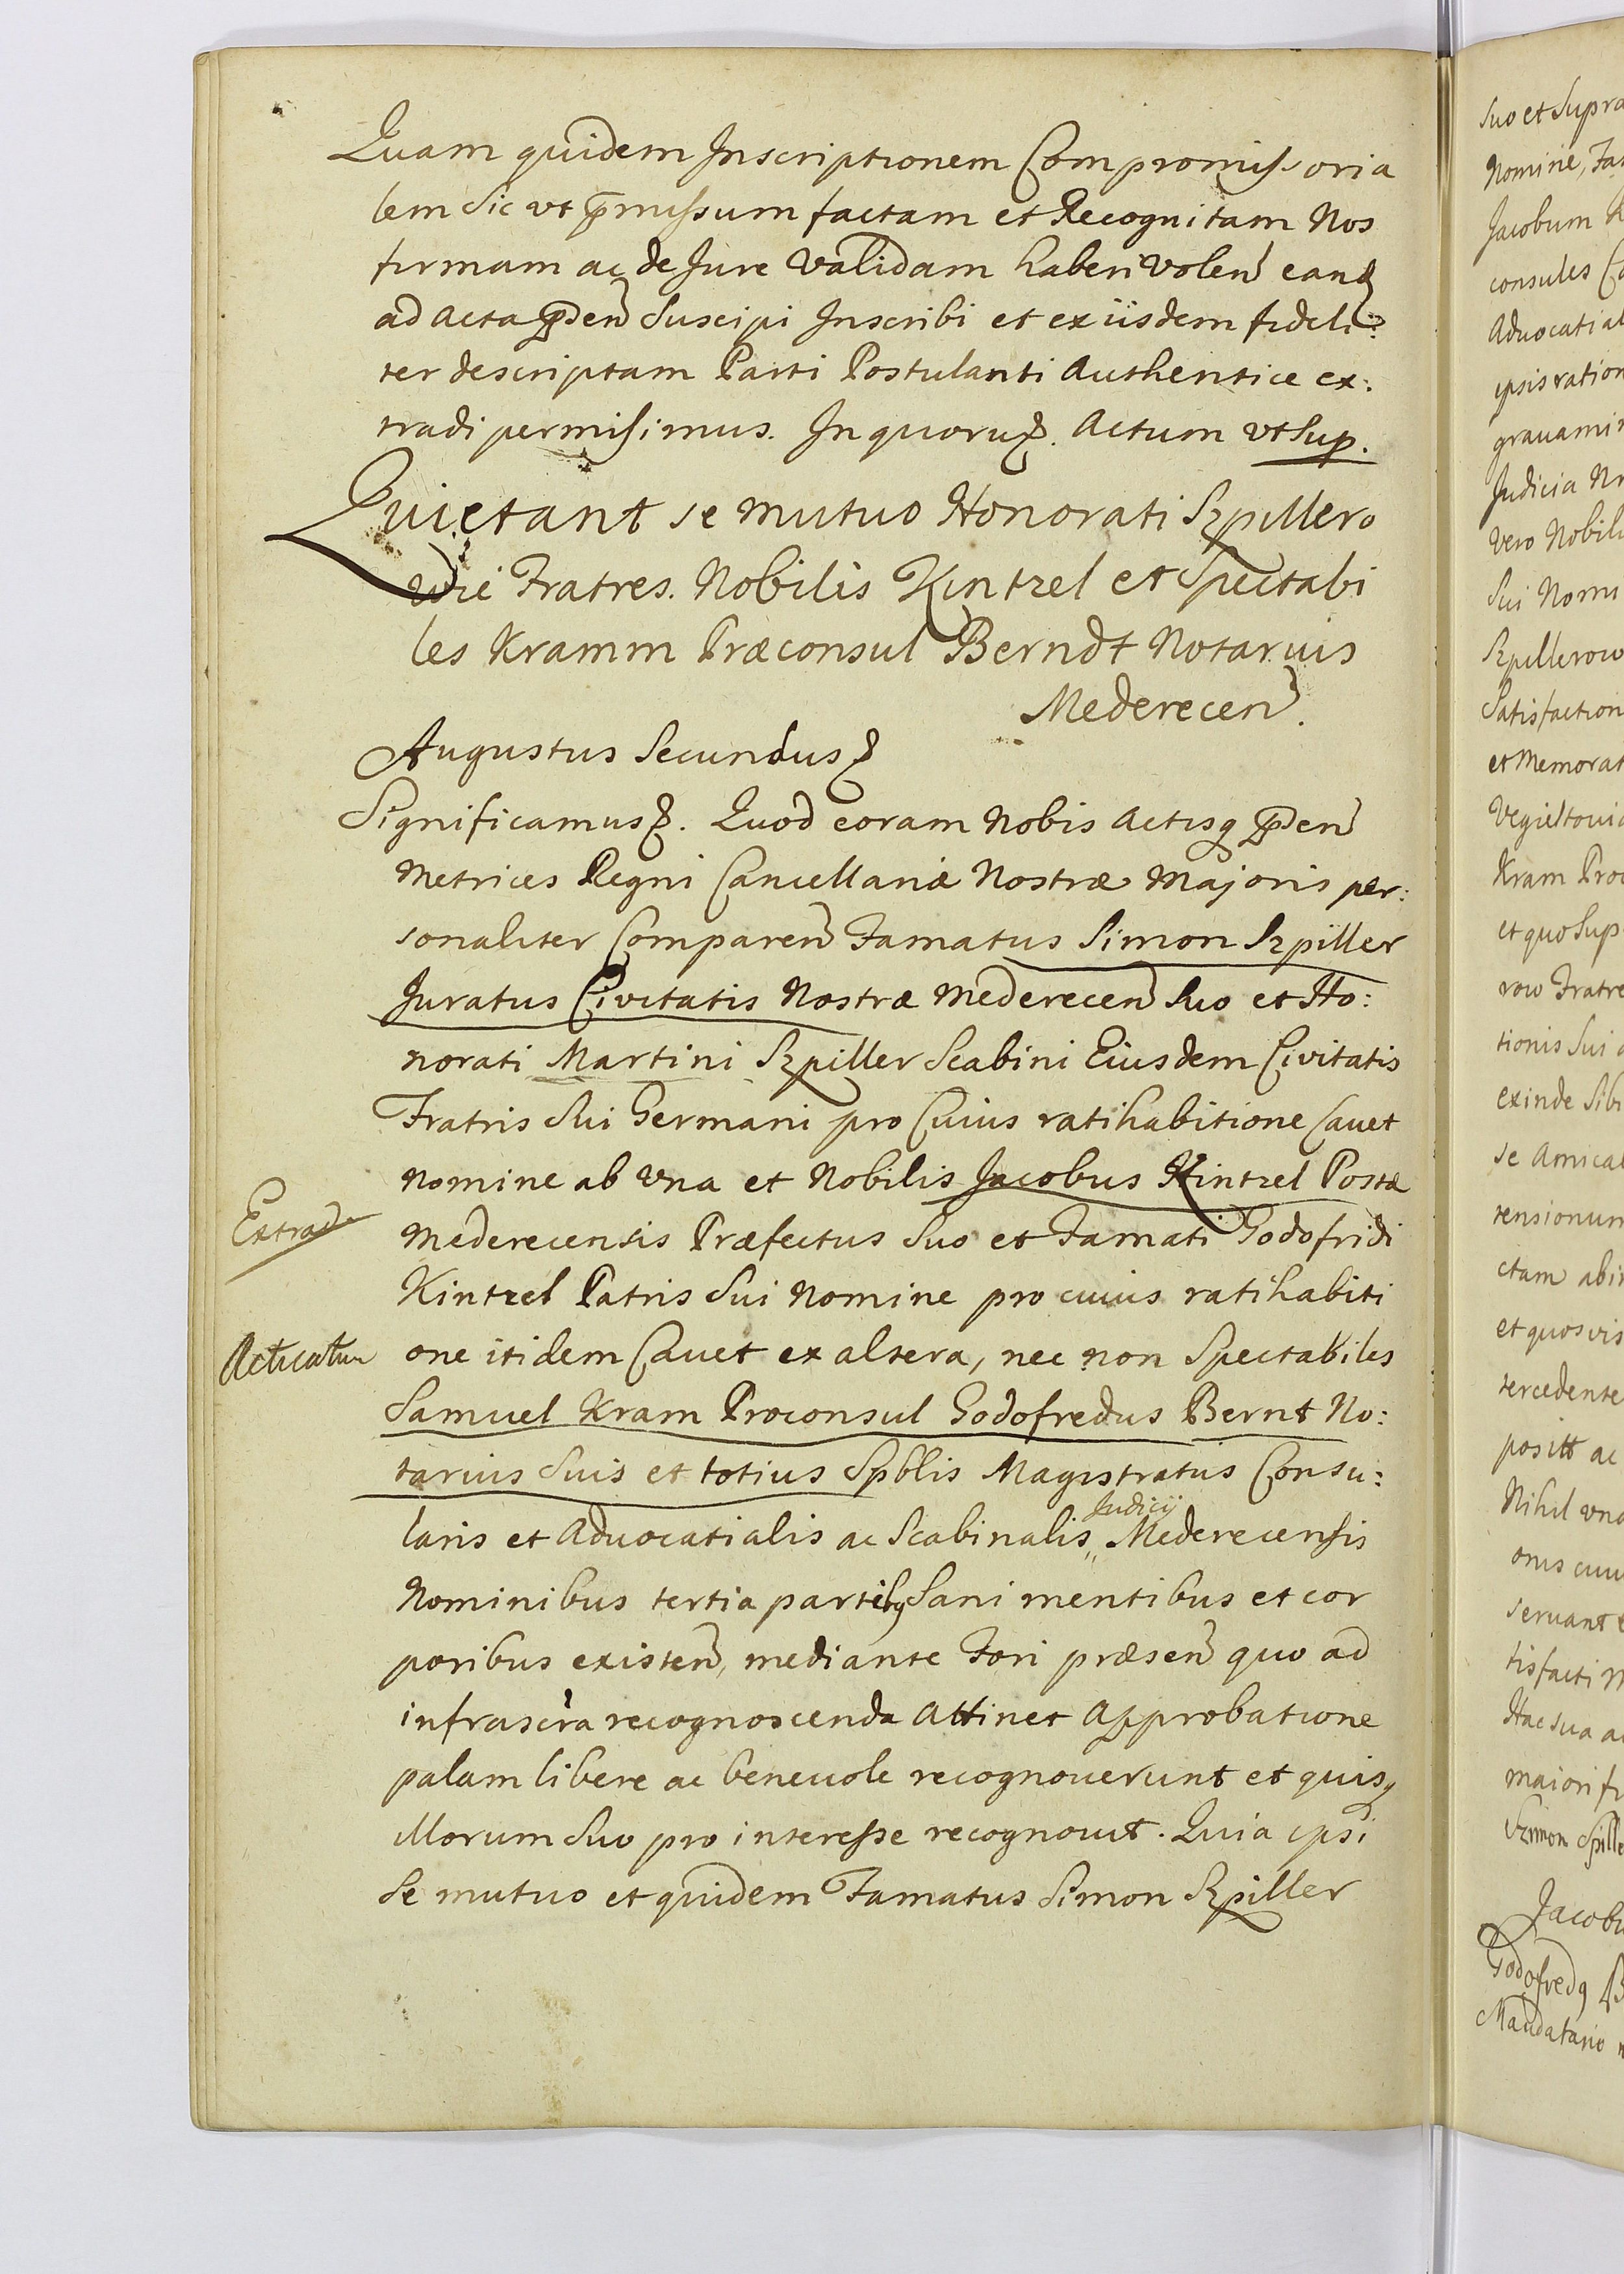 Quam quidem Inscriptionem Compromissoria
lem Sic vt p̄missum factam et Recognitam Nos
firmam ac de Jure validam haberi volen eand
ad Acta p̄sen Suscipi Inscribi et ex iisdem fideli:
ter descriptam Parti Postulanti Authentice ex:
tradi permisimus. In quoru. Actum vt Sup.
Quietant se mutuo Honorati Szpillero
wie Fratres. Nobilis Kintzel et Spectabi
les Kramm Præconsul Berndt Notarius
Mederecen.
Augustus Secundus
Significamus. Quod coram Nobis Actisq p̄sen
Metrices Regni Cancellariæ Nostræ Majoris per:
sonaliter Comparen Famatus Simon Szpiller
Juratus Civitatis Nostræ Mederecen Suo et Ho:
norati Martini Szpiller Scabini Eiusdem Civitatis
Fratris Sui Germani pro Cuius ratihabitione Cauet
Nomine ab vna et Nobilis Jacobus Kintzel Postæ
Extrad
Mederecensis Præfectus Suo et Famati Godofridi
Kintzel Patris Sui Nomine pro cuius ratihabiti
Acticatur
one itidem Cauet ex altera, nec non Spectabiles
Samuel Kram Proconsul Godofredus Bernt No:
tarius Suis et totius Spblis Magistratus Consu:
laris et Aduocatialis ac Scabinalis,, Judicij Mederecensis
Nominibus tertia partibq Sani mentibus et cor
poribus existen, mediante Fori præsen quo ad
infrascra recognoscenda Attinet Approbatione
palam libere ac beneuole recognouerunt et quisq
illorum Suo pro interesse recognouit. Quia ipsi
Se mutuo et quidem Famatus Simon Szpiller
Suo et Supra
Nomine,
Jacobum
consules
Aduocatial
ipsis ration
grauamin
Judicia
Vero Nobili
Sui Nomi
Szpillerow
Satisfaction
et Memorat
Kram Proc
et quo Sup
row Fratre
tionis Sui
exinde Sibi
se Amicab
tensionum
ctam abin
et quosvis
tercedente
positt ac
Nihil vna
seruant
tisfacti
Hac sua
maiori
Szimon Spille
Jacobu
Godofredq B
Mandatario